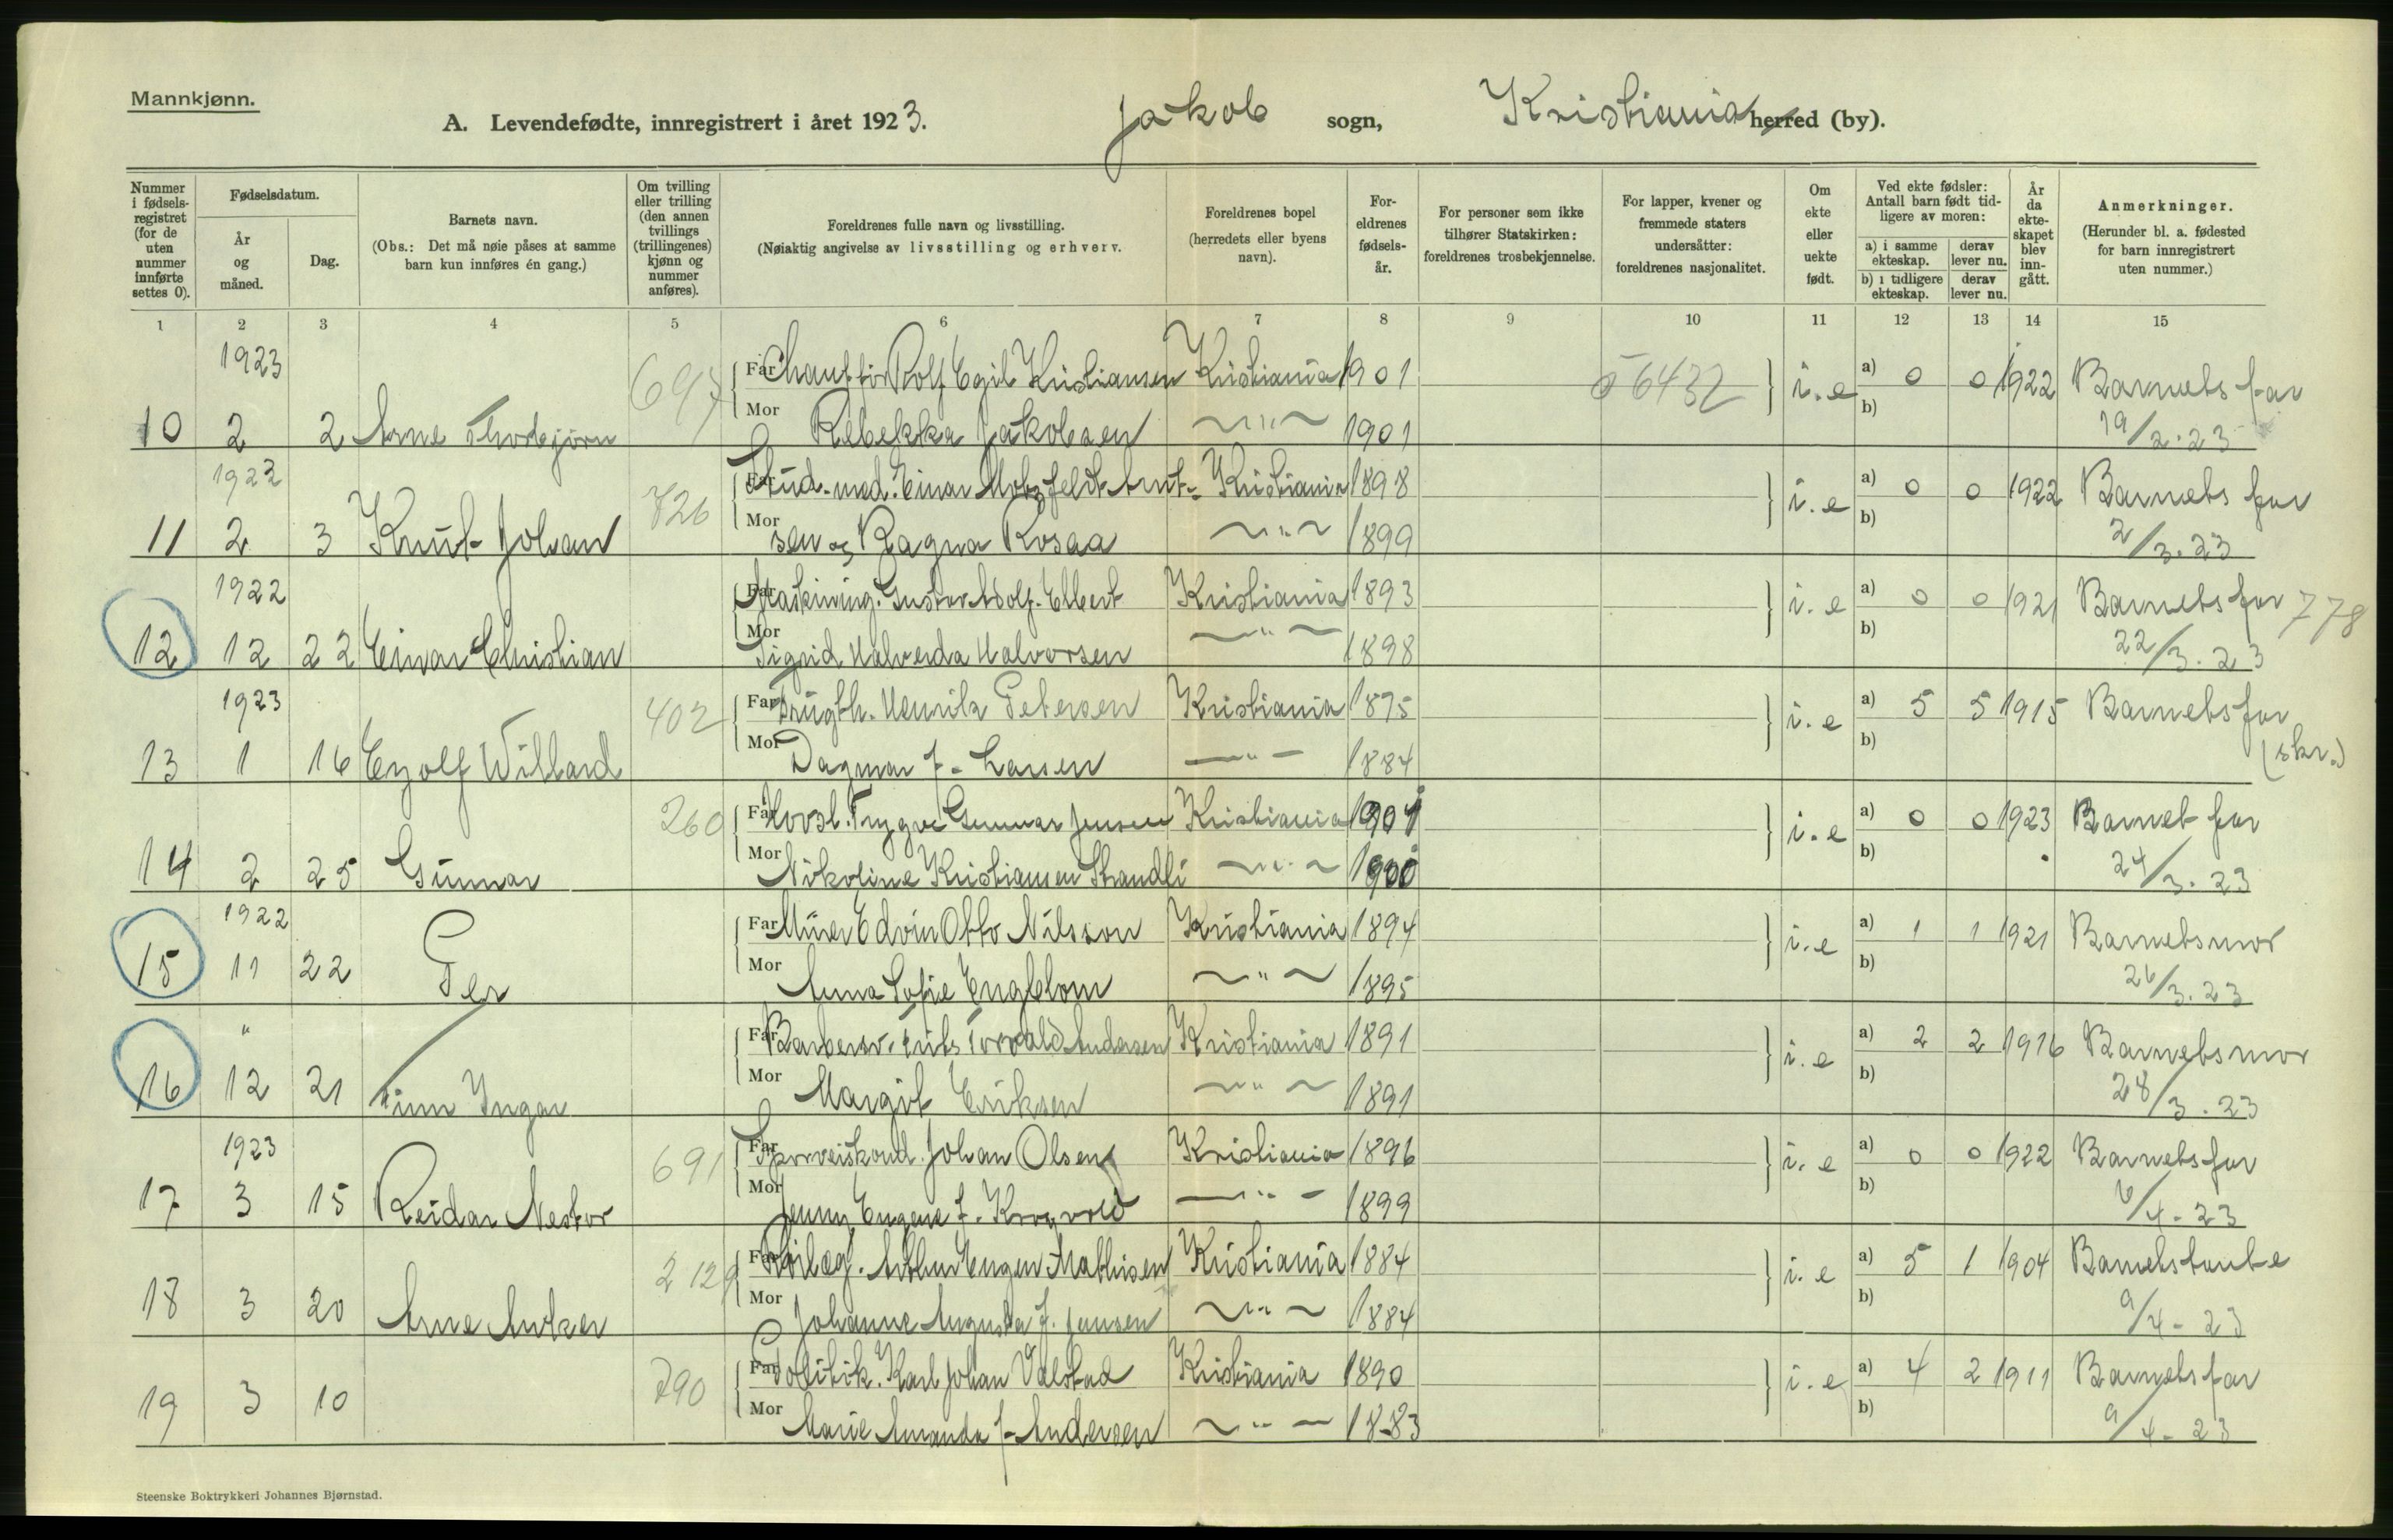 Mannkjønn.
A. Levendefødte, innregistrert i året 1923. Jakob sogn, Kristiania herred (by).
Nummer i fødsels-registret (for de uten nummer innførte settes 0).
Fødselsdatum.
År og måned.
Dag.
Barnets navn.
(Obs.: Det må nøie påses at samme barn kun innføres én gang.)
Om tvilling eller trilling (den annen tvillings (trillingenes) kjønn og nummer anføres).
Foreldrenes fulle navn og livsstilling.
(Nøiaktig angivelse av livsstilling og erhverv.
Foreldrenes bopel (herredets eller byens navn).
For-eldrenes fødsels-år.
For personer som ikke tilhører Statskirken: foreldrenes trosbekjennelse.
For lapper, kvener og fremmede staters undersåtter: foreldrenes nasjonalitet.
Om ekte eller uekte født.
Ved ekte fødsler: Antall barn født tid-ligere av moren:
a) i samme ekteskap. derav lever nu.
b) i tidligere ekteskap. derav lever nu.
År da ekte-skapet blev inn-gått.
Anmerkninger.
(Herunder bl. a. fødested for barn innregistrert uten nummer.)
1 2 3 4 5 6 7 8 9 10 11 12 13 14 15
1923 697 Far Chauffør Rolf Egil Kristiansen Kristiania 1901 6432 i.e a) 0 0 1922 Barnets far
10 2 2 Arne Thorbjørn Mor Rebekka Jakobsen —"— 1901 b) 19/2.23
1923 726 Far Stud. med. Einar Motzfeldt Arnt- Kristiania 1898 i.e a) 0 0 1922 Barnets far
11 2 3 Knut Johan Mor sen og Ragna Rosaa —"— 1899 b) 2/3.23
1922 Far Maskining. Gustav Adolf Elbert Kristiania 1893 i.e a) 0 0 1921 Barnets far 778
12 12 22 Einar Christian Mor Sigrid Halverda Halvorsen —"— 1898 b) 22/3.23
1923 402 Far Henrik Petersen Kristiania 1875 i.e a) 5 5 1915 Barnets far
13 1 16 Eyolf Willard Mor Dagmar f. Larsen —"— 1884 b) (skr.)
260 Far Trygve Gunnar Jensen Kristiania 1901 i.e a) 0 0 1923 Barnet far
14 2 25 Gunnar Mor Nikoline Kristiansen Strandli —"— 1900 b) 24/3.23
1922 Far Murer Edvin Otto Nilsson Kristiania 1894 i.e a) 1 1 1921 Barnets mor
15 11 22 Per Mor Anna Sofie Engblom —"— 1895 b) 26/3.23
" Far Barbersv. Frits Torvald Andersen Kristiania 1891 i.e a) 2 2 1916 Barnets mor
16 12 21 Finn Ingar Mor Margit Eriksen —"— 1891 b) 28/3.23
1923 691 Far Sporveiskond. Johan Olsen Kristiania 1896 i.e a) 0 0 1922 Barnets far
17 3 15 Reidar Nestor Mor Jenny Eugenie f. Krogvold —"— 1899 b) 6/4-23
2129 Far Arthur Eugen Mathisen Kristiania 1884 i.e a) 5 1 1904 Barnets tante
18 3 20 Arne Anker Mor Johanne Augusta f. Jensen —"— 1884 b) 9/4-23
790 Far Karl Johan Valstad Kristiania 1890 i.e a) 4 2 1911 Barnets far
19 3 10 Mor Marie Amanda f. Andersen —"— 1883 b) 9/4-23
Steenske Boktrykkeri Johannes Bjørnstad.